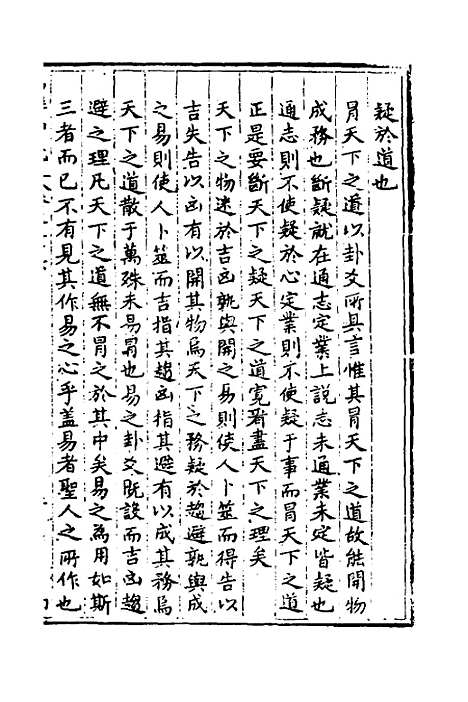 疑於道也
冐天下之道以卦爻所具言惟其冐天下之道故能開物
成務也斷疑就在通志定業上説志未通業未定皆疑也
通志則不使疑於心定業則不使疑于事而冐天下之道
正是要斷天下之疑天下之道寛看盡天下之理矣
天下之物迷於吉凶孰與開之易則使人卜筮而得告以
吉失告以凶有以開其物焉天下之務疑於趨避孰與成
之易則使人卜筮而吉指其趨凶指其避有以成其務焉
天下之道散于萬殊未易冐也易之卦爻既設而吉凶趨
避之理凡天下之道無不冐之於其中矣易之為用如斯
三者而已不有見其作易之心乎盖易者聖人之所作也